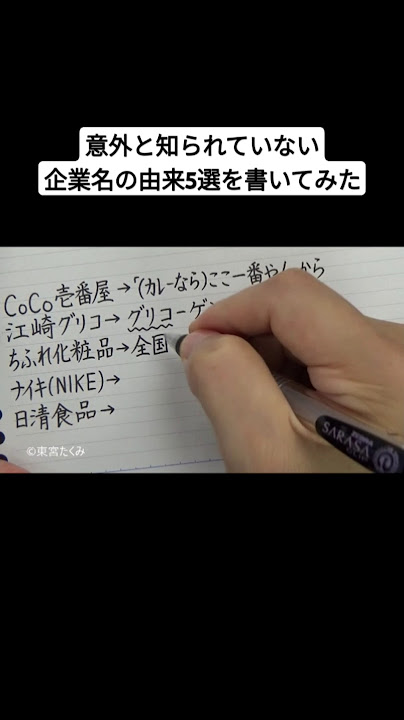 意外と知られていない
企業名の由来5選を書いてみた
CoCo壱番屋→「(カレーなら)ここ一番や」から
江崎グリコ→グリコーゲン
ちふれ化粧品→全国
ナイキ(NIKE)→
日清食品→
©東宮たくみ
SARASA